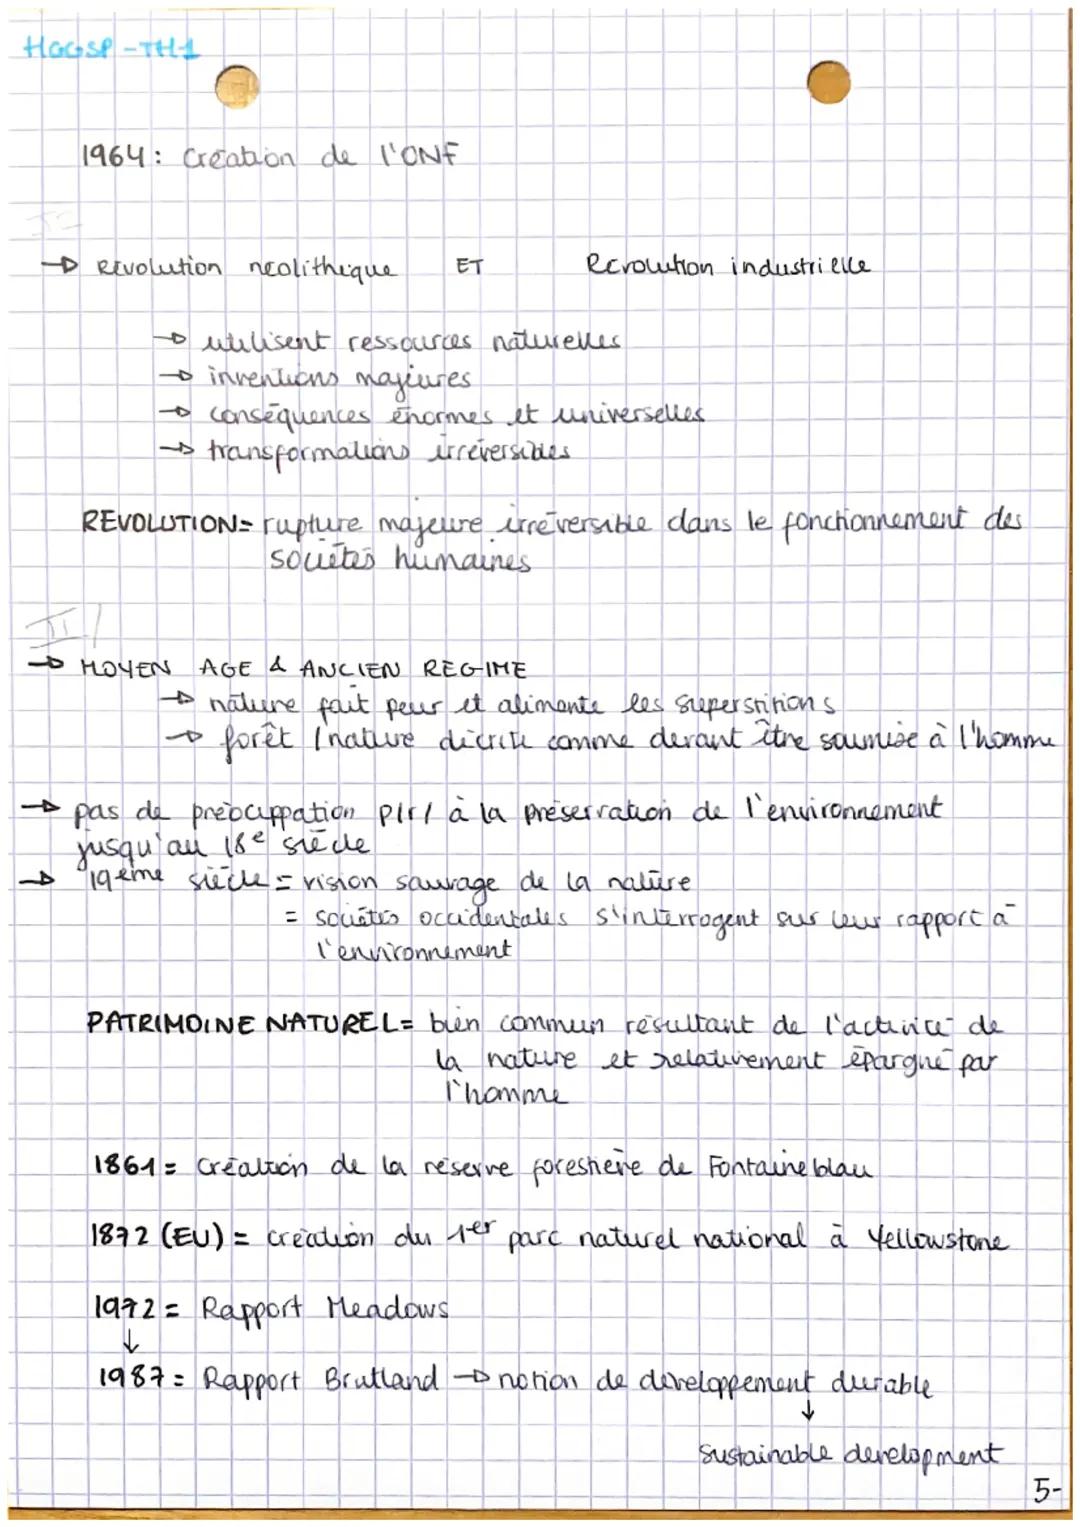 HGGSP - TH1
1964 : Création de l'ONF
→ Révolution néolithique ET Révolution industrielle
→ utilisent ressources naturelles
→ inventions majeures
→ conséquences énormes et universelles
→ transformations irréversibles
REVOLUTION = rupture majeure irréversible dans le fonctionnement des
sociétés humaines
II/
→ MOYEN AGE & ANCIEN REGIME
→ nature fait peur et alimente les superstitions
→ forêt / nature décrite comme devant être soumise à l'homme
→ pas de préocuppation p/r/ à la préservation de l'environnement
jusqu'au 18e siècle
→ 19ème siècle = vision sauvage de la nature
= sociétés occidentales s'interrogent sur leur rapport à
l'environnement
PATRIMOINE NATUREL = bien commun résultant de l'activité de
la nature et relativement épargné par
l'homme
1861 = Création de la réserve forestière de Fontainebleau
1872 (EU) = création du 1er parc naturel national à Yellowstone
1972 = Rapport Meadows
↓
1987 = Rapport Brutland → notion de développement durable
↓
Sustainable development
5-